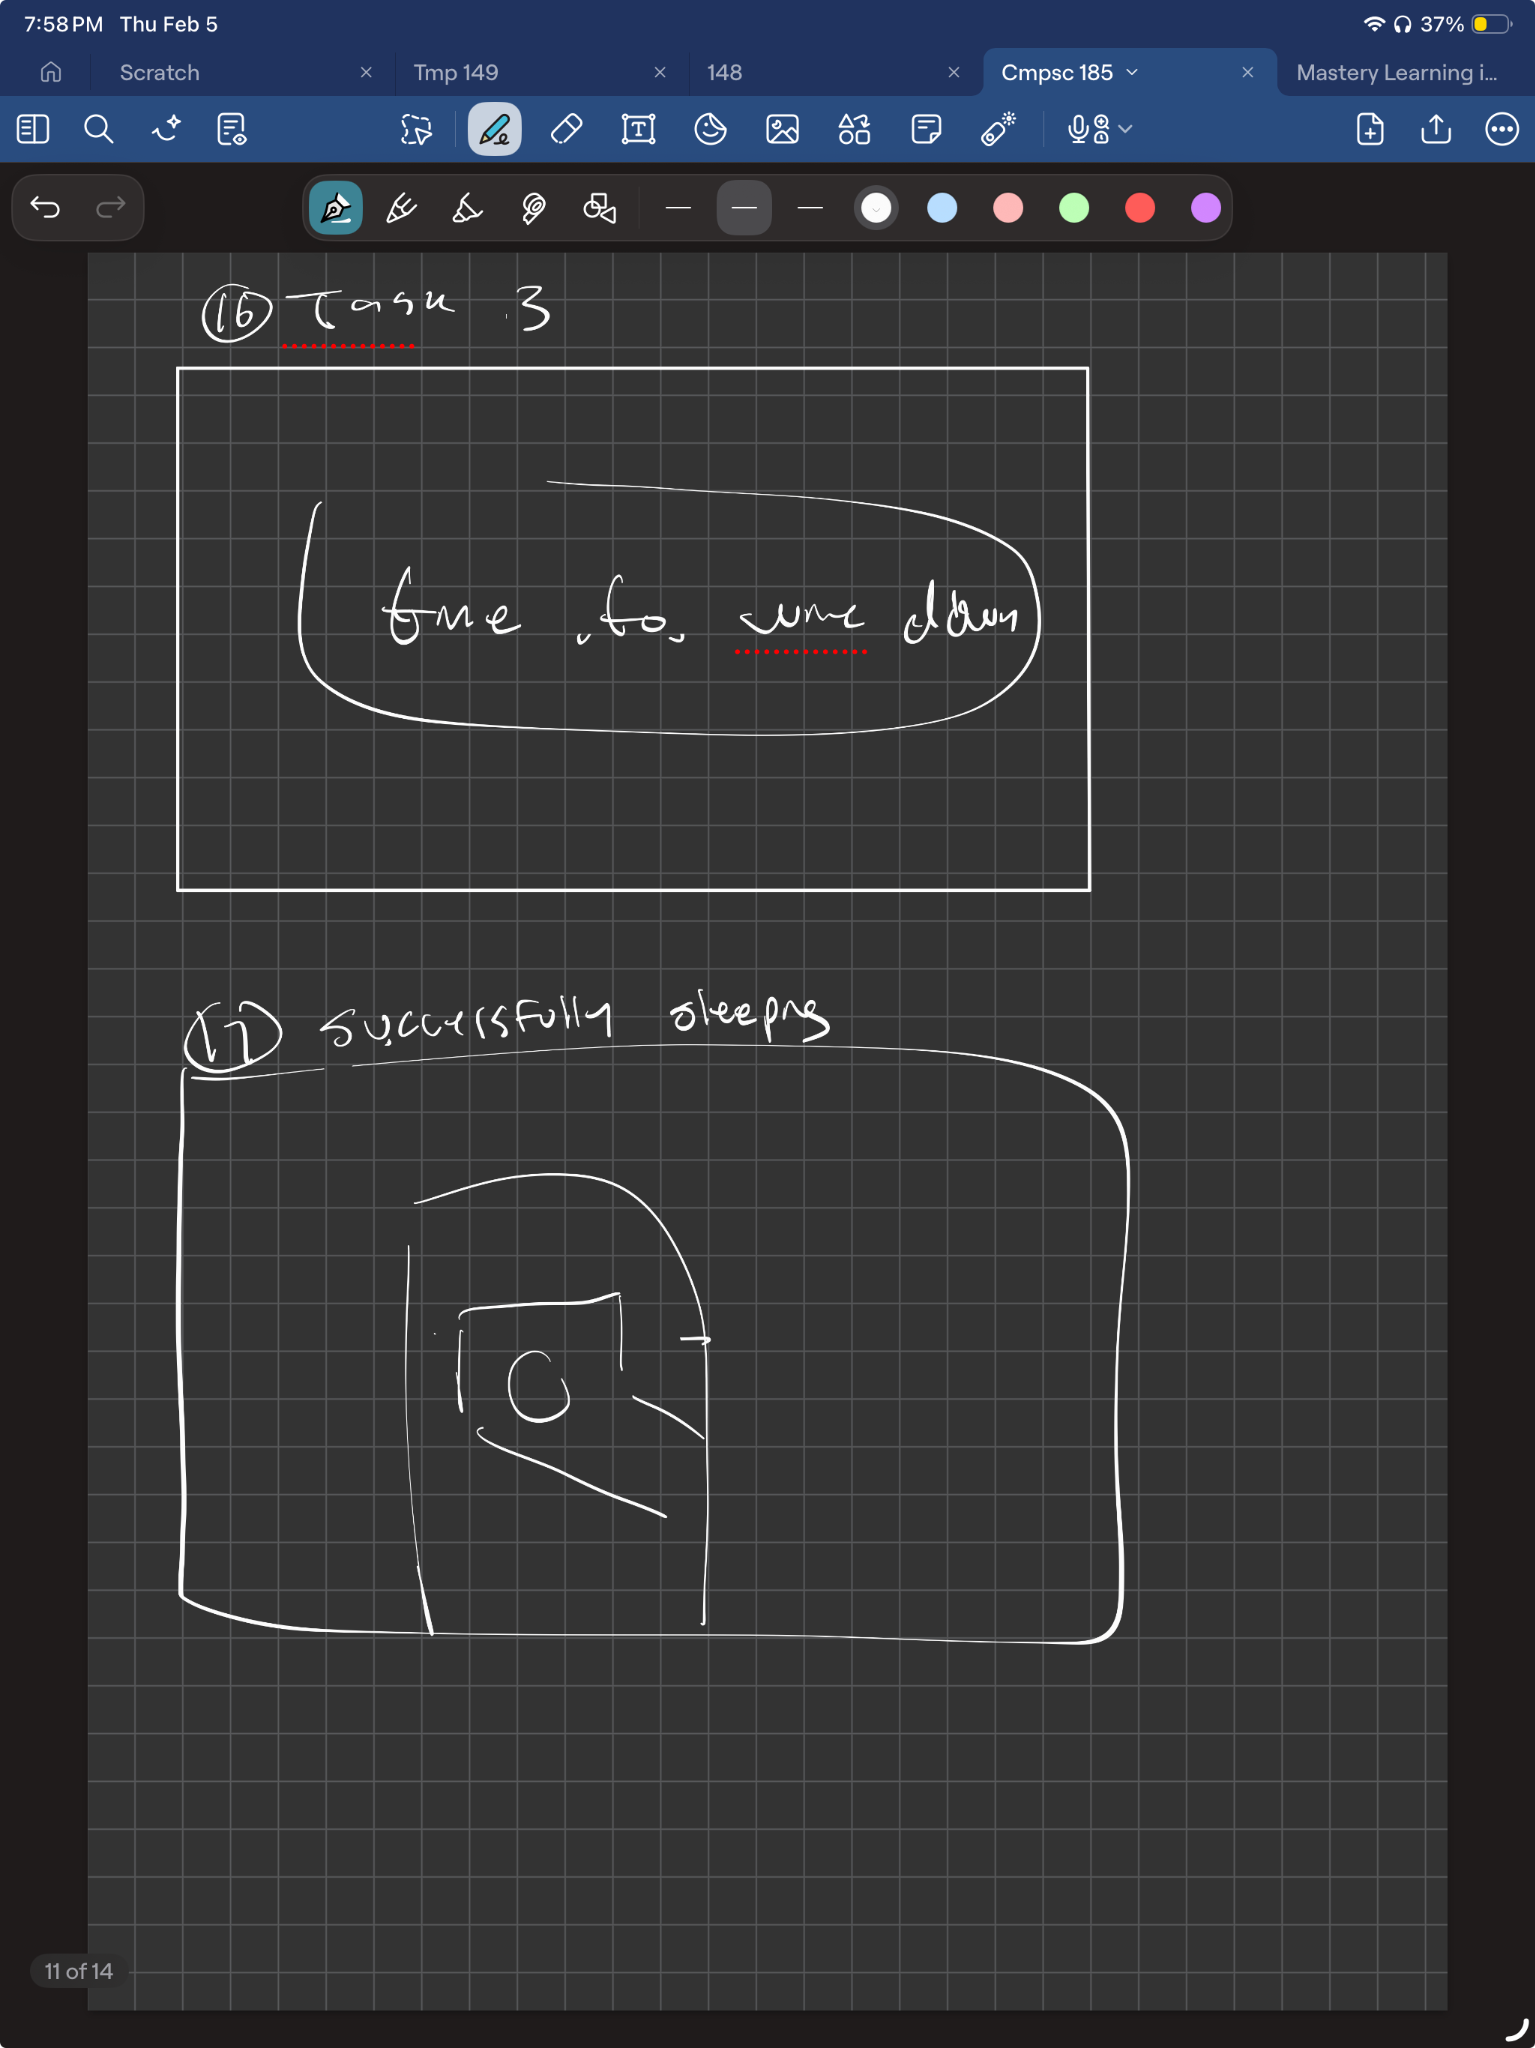 7:58 PM Thu Feb 5 37%
Scratch Tmp 149 148 Cmpsc 185 Mastery Learning i...
16 Task 3
time to wine down
17 successfully sleeping
11 of 14